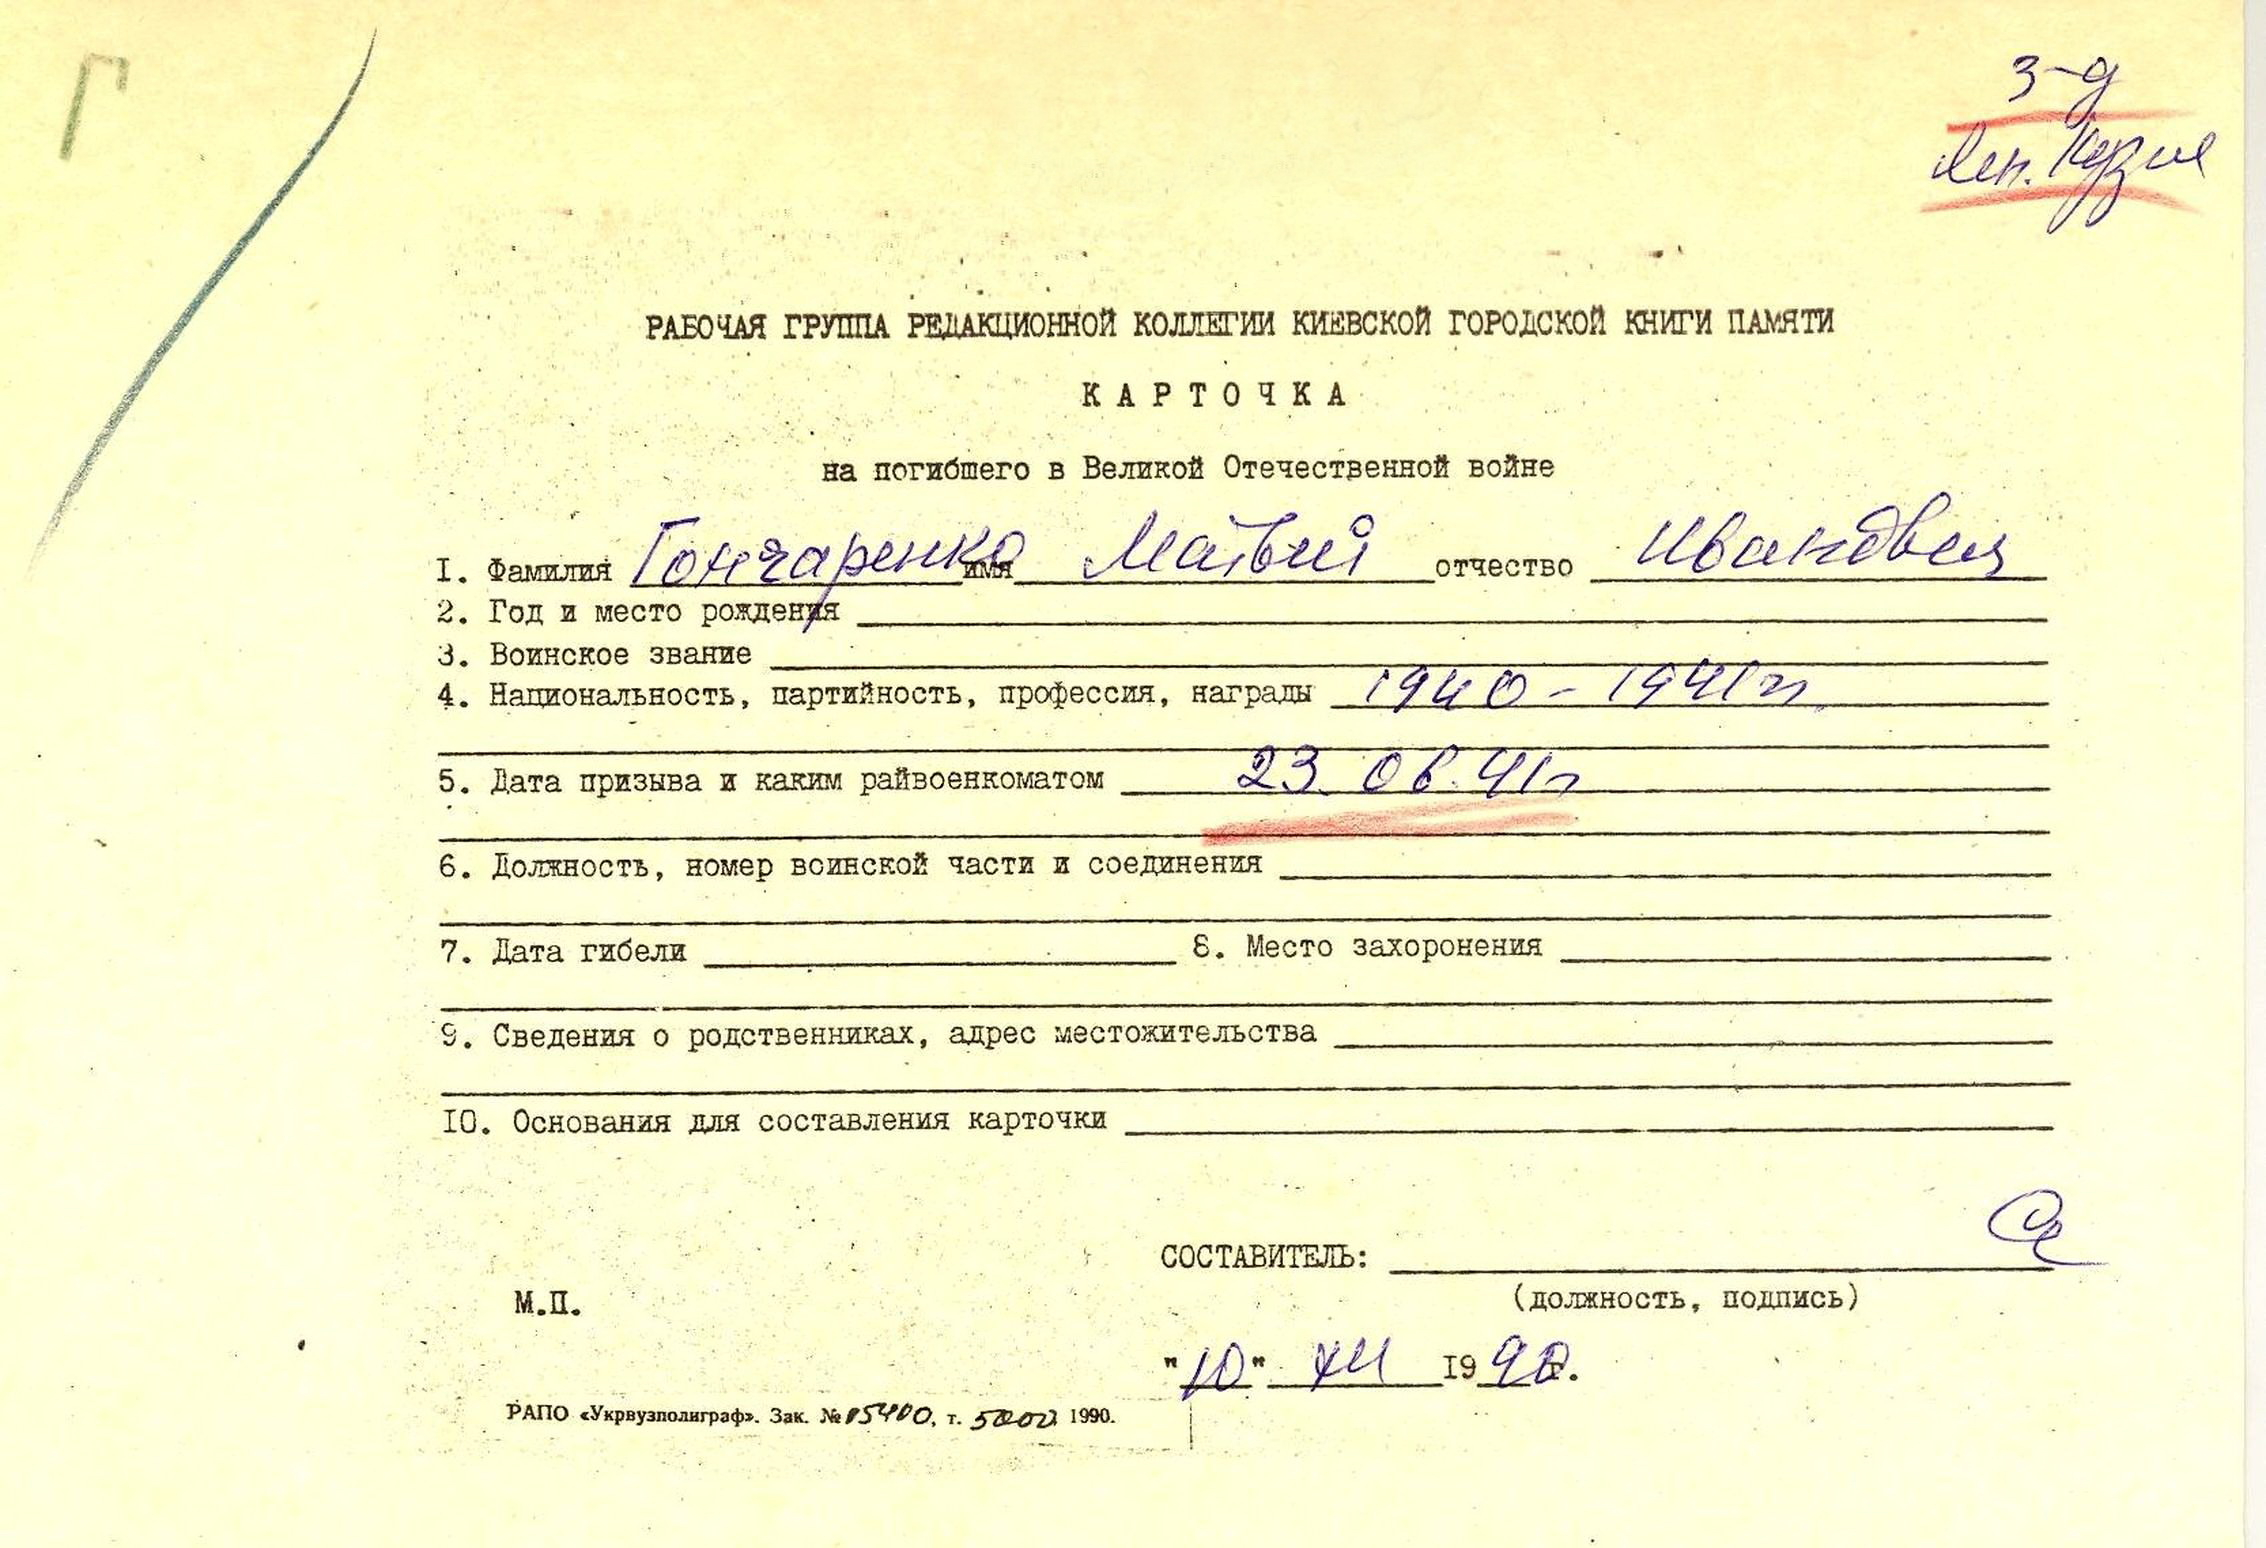 Г
з-д
Лен. Кузня
РАБОЧАЯ ГРУППА РЕДАКЦИОННОЙ КОЛЛЕГИИ КИЕВСКОЙ ГОРОДСКОЙ КНИГИ ПАМЯТИ
КАРТОЧКА
на погибшего в Великой Отечественной войне
I. Фамилия Гончаренко имя Матвий отчество Иванович
2. Год и место рождения
3. Воинское звание
4. Национальность, партийность, профессия, награды 1940 - 1941 гг
5. Дата призыва и каким райвоенкоматом 23.06.41г
6. Должность, номер воинской части и соединения
7. Дата гибели 8. Место захоронения
9. Сведения о родственниках, адрес местожительства
IO. Основания для составления карточки
СОСТАВИТЕЛЬ:
М.П. (должность, подпись)
"10" XII 1990г.
РАПО «Укрвузполиграф». Зак. № 05400, т. 5000 1990.